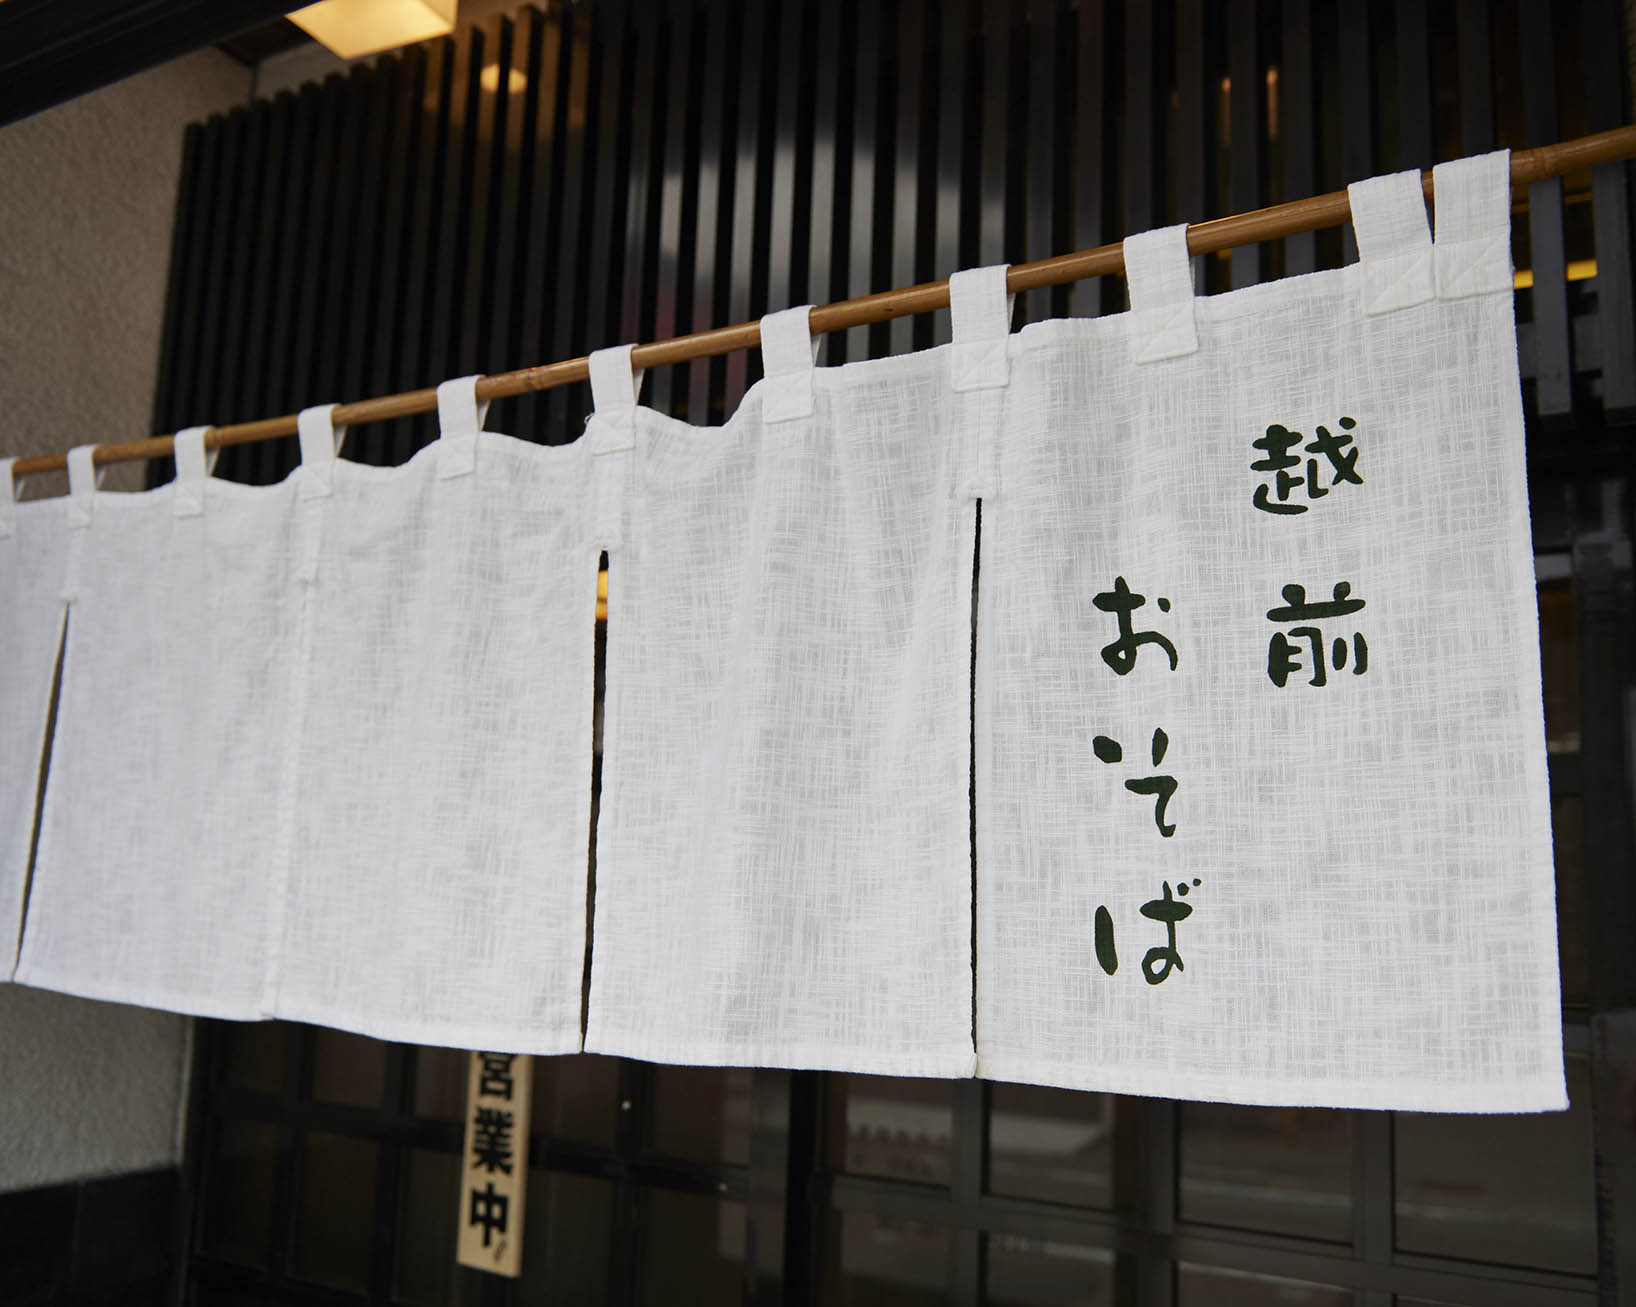 越前
おそば
営業中